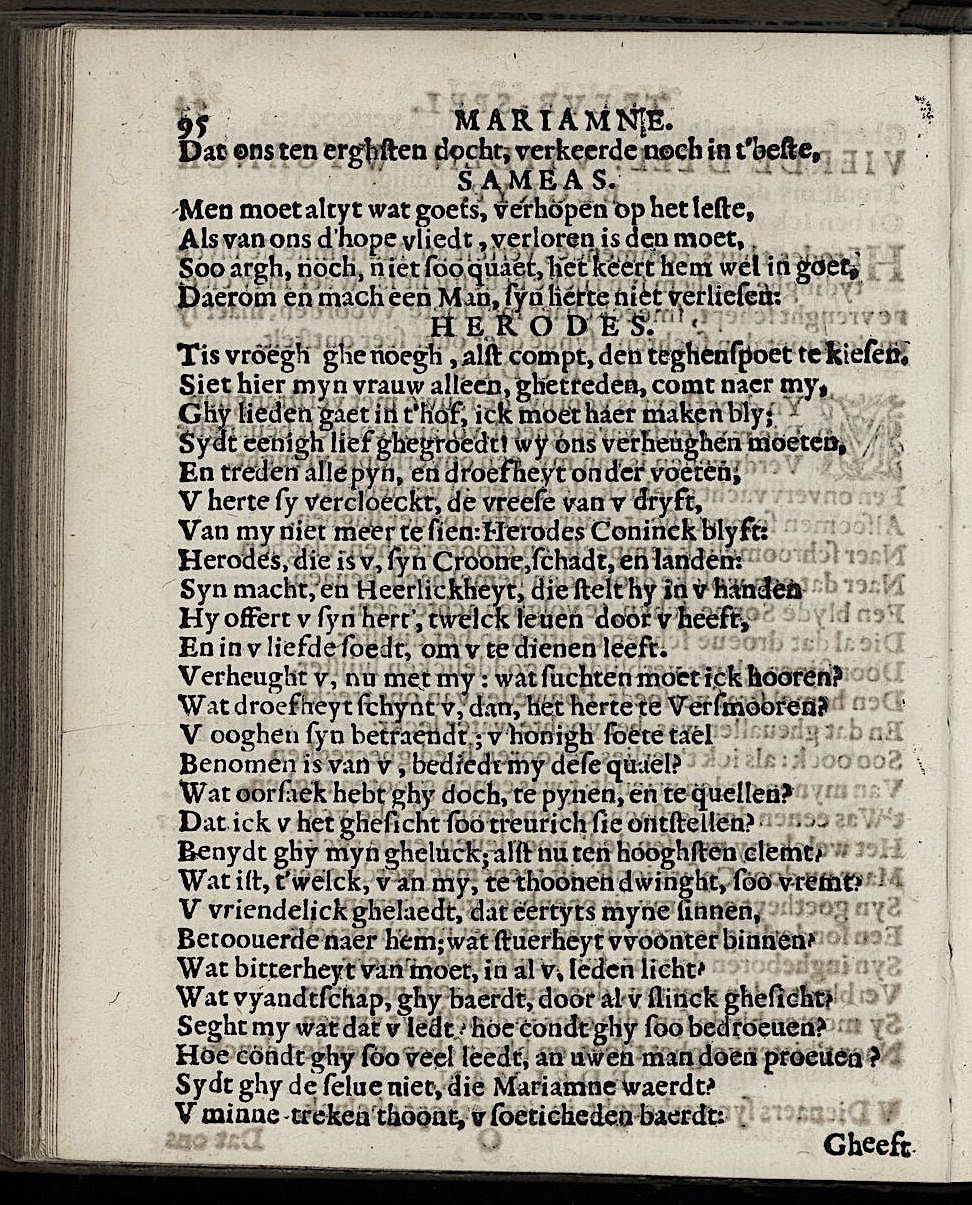 95 MARIAMNE.
Dat ons ten erghſten docht, verkeerde noch in t'beſte,
SAMEAS.
Men moet altyt wat goets, verhopen op het leſte,
Als van ons d'hope vliedt, verloren is den moet,
Soo argh, noch, niet ſoo quaet, het keert hem wel in goet,
Daerom en mach een Man, ſyn herte niet verlieſen:
HERODES.
Tis vroegh ghenoegh, alſt compt, den teghenſpoet te kieſen.
Siet hier myn vrauw alleen, ghetreden, comt naer my,
Ghy lieden gaet in t'hof, ick moet haer maken bly;
Sydt eenigh lief ghegroedt! wy ons verheughen moeten,
En treden alle pyn, en droefheyt onder voeten;
V herte ſy vercloeckt, de vreeſe van v dryft,
Van my niet meer te ſien: Herodes Coninck blyft:
Herodes, die is v, ſyn Croone, ſchadt, en landen:
Syn macht, en Heerlickheyt, die ſtelt hy in v handen
Hy offert v ſyn hert', twelck leuen door v heeft,
En in v liefde ſoedt, om v te dienen leeft.
Verheught v, nu met my: wat ſuchten moet ick hooren?
Wat droefheyt ſchynt v, dan, het herte te Verſmooren?
V ooghen ſyn betraendt; v honigh ſoete tael
Benomen is van v, bediedt my deſe quael?
Wat oorſaek hebt ghy doch, te pynen, en te quellen?
Dat ick v het gheſicht ſoo treurich ſie ontſtellen?
Benydt ghy myn gheluck, alſt nu ten hooghſten clemt?
Wat iſt, t'welck, van my, te thoonen dwinght, ſoo vremt?
V vriendelick ghelaedt, dat eertyts myne ſinnen,
Betoouerde naer hem; wat ſtuerheyt vvoonter binnen?
Wat bitterheyt van moet, in al v, leden licht?
Wat vyandtſchap, ghy baerdt, door al v ſlinck gheſicht?
Seght my wat dat v ledt? hoe condt ghy ſoo bedroeuen?
Hoe condt ghy ſoo veel leedt, an uwen man doen proeuen?
Sydt ghy de ſelue niet, die Mariamne waerdt?
V minne-treken thoont, v ſoeticheden baerdt:
Gheeft